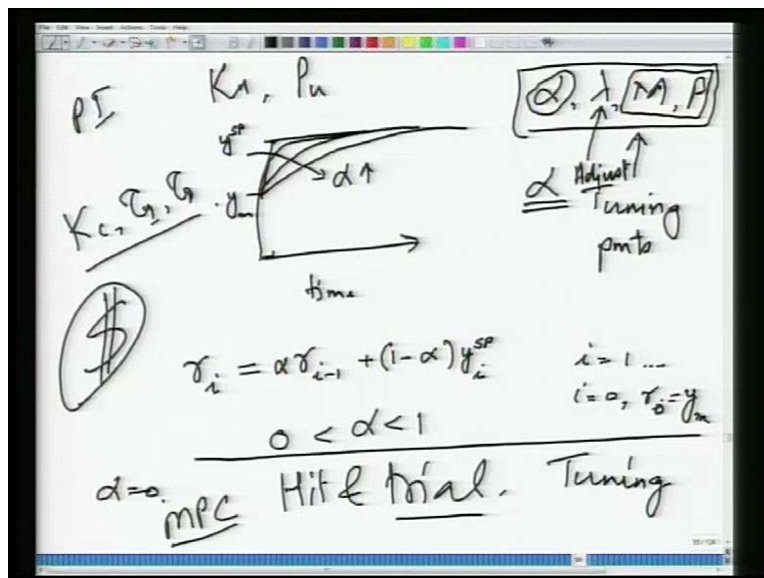 File Edit View Insert Actions Tools Help
PI
K_u, P_u
α, λ, M, P
y^SP
α ↑
y_m
K_c, τ_I, τ
α Adjust
Tuning
pmts
time
$
γ_i = αγ_{i-1} + (1-α) y_i^SP
i = 1 ...
i = 0, γ_0 = y_m
0 < α < 1
α = 0.
MPC Hit & trial. Tuning